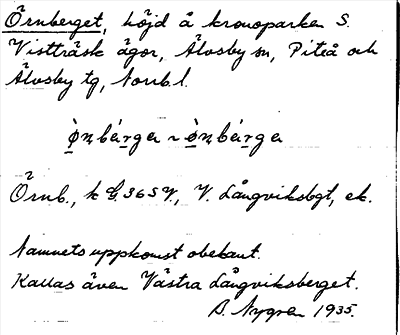 Örnberget, höjd å kronoparken S.
Vistträsk ägor, Älvsby sn, Piteå och
Älvsby tg, Norrb. l.
ò̱ṉbèrga ~ ò̱ṉbèrga
Örnb., k G. 36 S V., V. Långviksbgt, ek.
Namnets uppkomst obekant.
Kallas även Västra Långviksberget.
B. Nygren 1935.